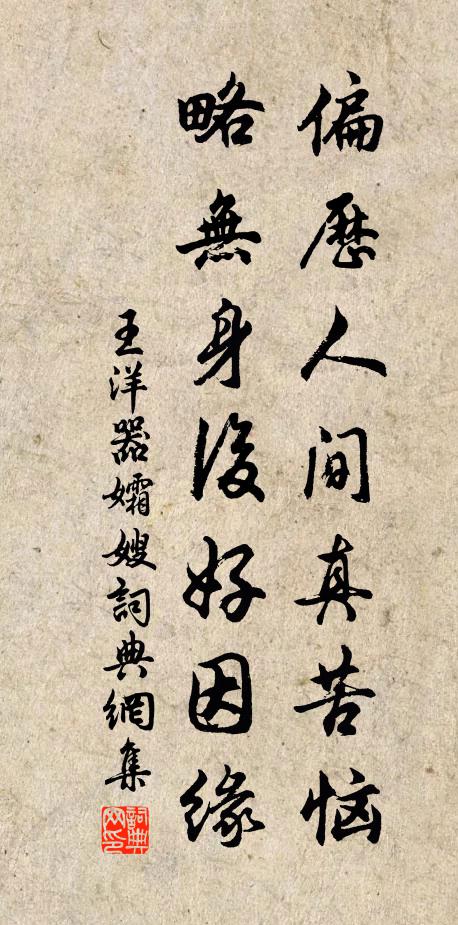 偏歷人間真苦惱
略無身後好因緣
王洋器孀嫂詞典網集
詞典網印